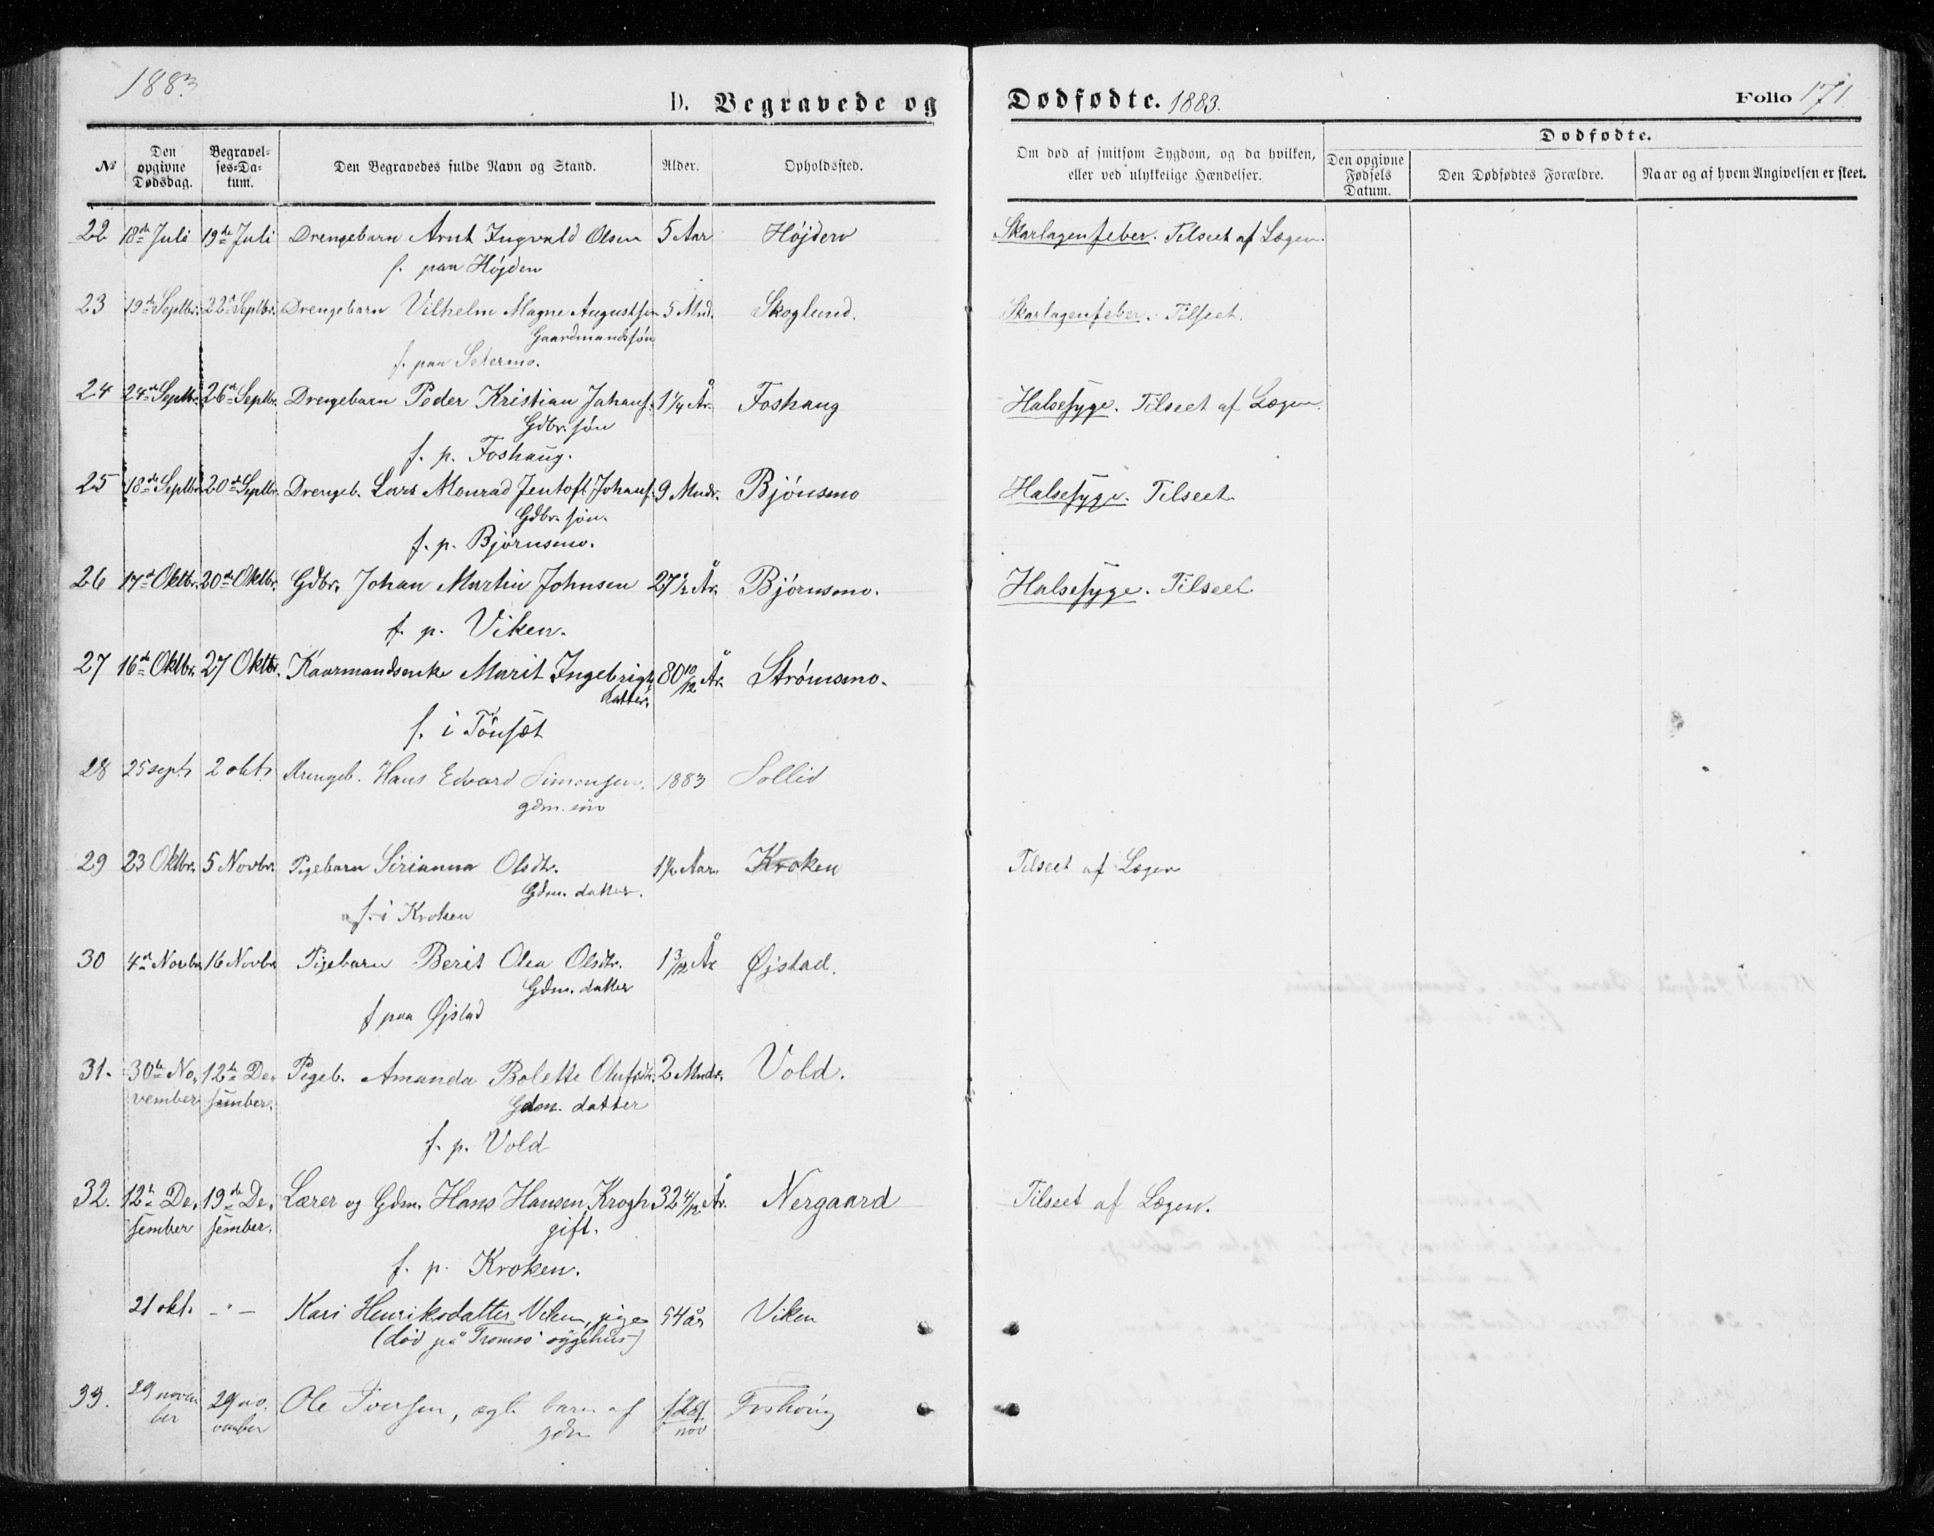 1883
D. Begravede og
Dødfødte. 1883.
Folio 171.
№
Den opgivne Dødsdag.
Begravelses-Datum.
Den Begravedes fulde Navn og Stand.
Alder.
Opholdssted.
Om død af smitsom Sygdom, og da hvilken,
eller ved ulykkelige Hændelser.
Dødfødte.
Den opgivne Fødsels Datum.
Den Dødfødtes Forældre.
Naar og af hvem Angivelsen er skeet.
22 18de Juli 19de Juli Drengebarn Arnt Ingvald Olsen 5 Aar Højden Skarlagenfeber. Tilseet af Lægen.
f. paa Højden
23 19de Septbr. 22de Septbr. Drengebarn Vilhelm Magne Augustsen 5 Mnd. Skoglund. Skarlagenfeber. Tilseet.
Gaardmandssøn
f. paa Setermo.
24 24de Septbr. 26de Septbr. Drengebarn Peder Kristian Johans. 1 1/4 År. Foshaug Halsesyge. Tilseet af Lægen.
Gdbr. søn
f. p. Foshaug.
25 18de Septbr. 20de Septbr. Drengeb. Lars Monrad Jentoft Johans. 9 Mndr. Bjørnsmo Halsesyge. Tilseet
Gdbr. søn.
f. p. Bjørnsmo.
26 17de Oktbr. 20de Oktbr. Gdbr. Johan Martin Johnsen 27 1/2 År. Bjørnsmo. Halsesyge. Tilseet
f. p. Viken.
27 16de Oktbr. 27 Oktbr. Kaarmandsenke Marit Ingebrigts 80 10/12 År. Strømsmo.
datter.
f. i Tønsæt
28 25 sept. 2 okt. Drengeb. Hans Edvard Simonsen. 1883 Sollid
gdm. søn
29 23 Oktbr. 5 Novbr. Pigebarn Sirianna Olsdtr. 1 1/2 Aar Kroken Tilseet af Lægen
Gdm. datter.
f. i Kroken
30 4de Novbr. 16 Novbr. Pigebarn Berit Olea Olsdtr. 1 3/12 År Øjstad.
Gdm. datter
f paa Øjstad
31. 30te No- 12te De- Pigeb. Amanda Bolette Olufsdtr. 2 Mndr. Vold.
vember sember. Gdm. datter
f. p. Vold
32. 12te De- 19de De- Lærer og Gdm. Hans Hansen Krogh 32 4/12 År. Nergaard Tilseet af Lægen.
sember sember. gift.
f. p. Kroken.
21 okt. - " - Kari Henriksdatter Viken, pige 54 år Viken
(død på Tromsø sygehus)
33. 29 novem 29 no. Ole Iversen, ægte barn af Foshaug
ber vember gdm nov